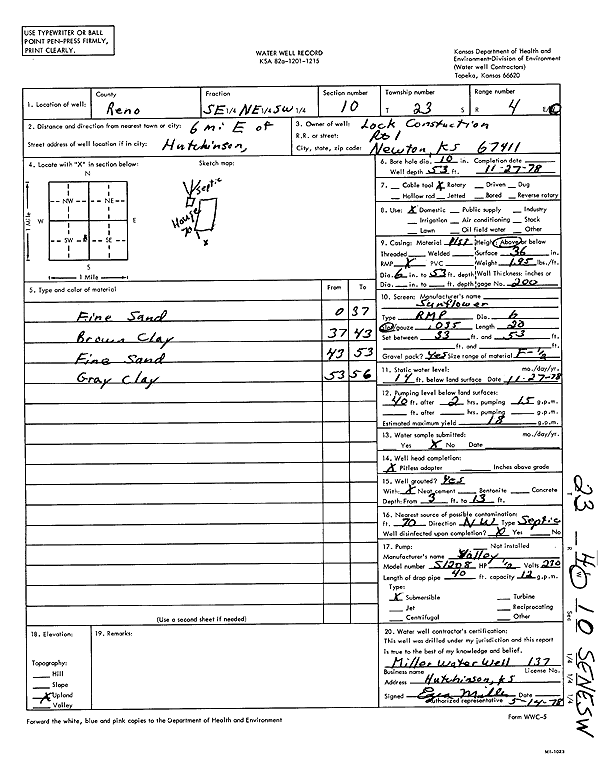 USE TYPEWRITER OR BALL
POINT PEN-PRESS FIRMLY,
PRINT CLEARLY.
WATER WELL RECORD
KSA 82a-1201-1215
Kansas Department of Health and
Environment-Division of Environment
(Water well Contractors)
Topeka, Kansas 66620
1. Location of well: County Reno Fraction SE 1/4 NE 1/4 SW 1/4 Section number 10 Township number T 23 S Range number R 4 E/W
2. Distance and direction from nearest town or city: 6 mi E of
Street address of well location if in city: Hutchinson,
3. Owner of well: Lock Constuction
R.R. or street: Rt 1
City, state, zip code: Newton, KS 67411
4. Locate with "X" in section below:
Sketch map:
N
NW NE
W E
SW SE
S
1 Mile
1 Mile
Septic
House
70
X
5. Type and color of material From To
Fine Sand 0 37
Brown Clay 37 43
Fine Sand 43 53
Gray Clay 53 56
(Use a second sheet if needed)
6. Bore hole dia. 10 in. Completion date
Well depth 53 ft. 11-27-78
7. Cable tool X Rotary Driven Dug
Hollow rod Jetted Bored Reverse rotary
8. Use: X Domestic Public supply Industry
Irrigation Air conditioning Stock
Lawn Oil field water Other
9. Casing: Material Height: Above or below
Threaded Welded Surface 36 in.
RMP X PVC Weight 1.95 lbs./ft.
Dia. 6 in. to 53 ft. depth Wall Thickness: inches or
Dia. in. to ft. depth gage No. 200
10. Screen: Manufacturer's name
Sunflower
Type RMP Dia. 6
Slot/gauze .035 Length 20
Set between 33 ft. and 53 ft.
ft. and ft.
Gravel pack? Yes Size range of material F-1/2
11. Static water level: mo./day/yr.
14 ft. below land surface Date 11-27-78
12. Pumping level below land surfaces:
40 ft. after 2 hrs. pumping 15 g.p.m.
ft. after hrs. pumping g.p.m.
Estimated maximum yield 18 g.p.m.
13. Water sample submitted: mo./day/yr.
Yes X No Date
14. Well head completion:
X Pitless adapter Inches above grade
15. Well grouted? Yes
With: X Neat cement Bentonite Concrete
Depth: From 3 ft. to 13 ft.
16. Nearest source of possible contamination:
ft. 70 Direction NW Type Septic
Well disinfected upon completion? X Yes No
17. Pump: Not installed
Manufacturer's name Valley
Model number HP 1/2 Volts 230
Length of drop pipe 40 ft. capacity 12 g.p.m.
Type:
X Submersible Turbine
Jet Reciprocating
Centrifugal Other
18. Elevation:
Topography:
Hill
Slope
X Upland
Valley
19. Remarks:
20. Water well contractor's certification:
This well was drilled under my jurisdiction and this report
is true to the best of my knowledge and belief.
Miller Water Well 137
Business name License No.
Address Hutchinson, KS
Signed Ezra Miller Date 5-14-78
Authorized representative
Forward the white, blue and pink copies to the Department of Health and Environment
Form WWC-5
T 23 R 4 W Sec 10 SE 1/4 NE 1/4 SW 1/4